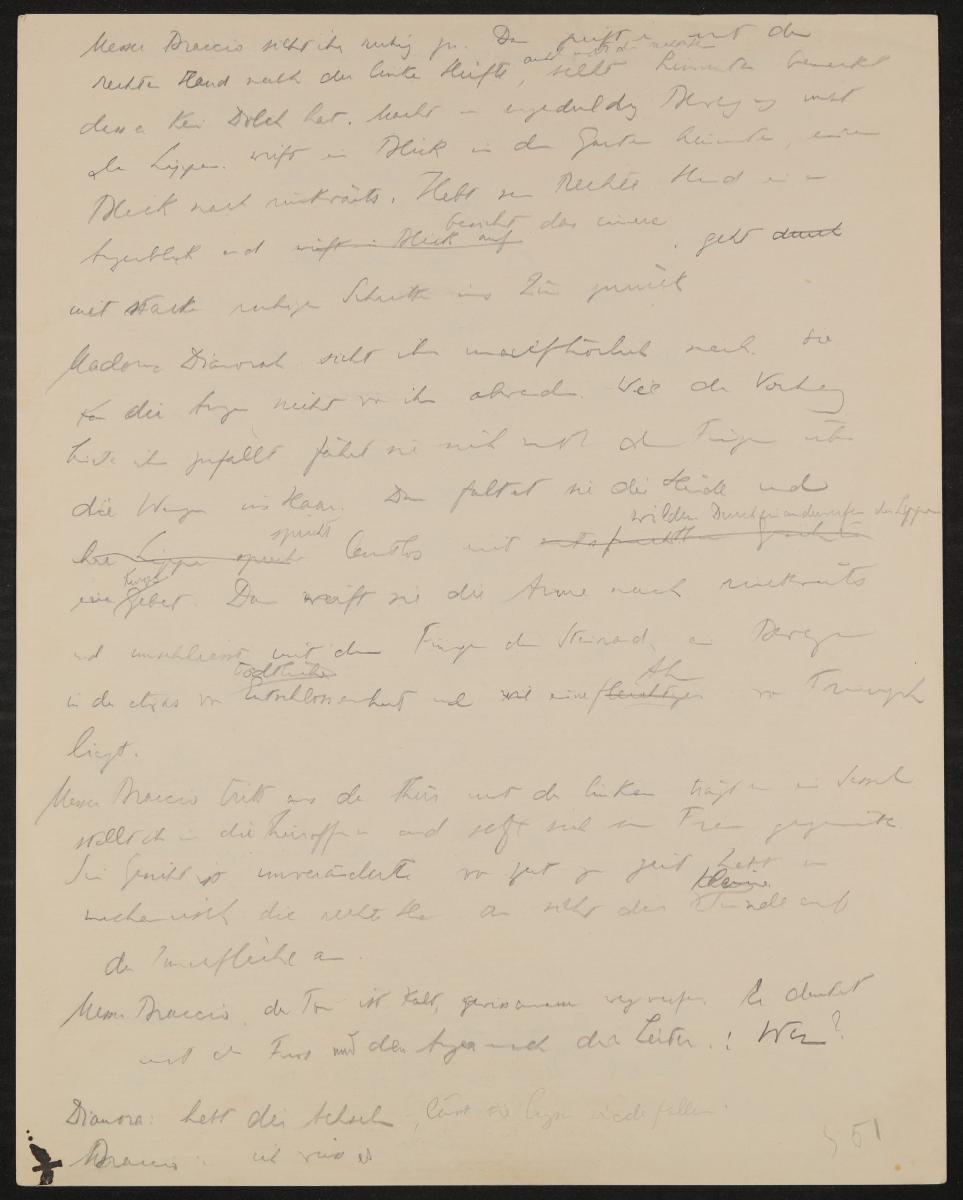 Messer Braccio sieht ihr ruhig zu. Dann greift er mit der
rechten Hand nach der linken Hüfte, sieht hinunter bemerkt
dass er kein Dolch hat. Macht eine ungeduldige Bewegung mit
den Lippen. wirft ein Blick in den Garten hinunter, einen
Blick nach rückwärts. Hebt seine rechte Hand einen
besieht das innere
Augenblick und wirft ein Blick auf . geht durch
mit starken ruhigen Schritten ins Zimmer zurück
Madonna Dianora sieht ihm unaufhörlich nach. Sie
kann die Augen nicht von ihm abwenden. Wie der Vorhang
hinter ihm zufällt fährt sie sich mit den Fingern über
die Wangen ins Haar. Dann faltet sie die Hände und
spricht wilden Durcheinanderwerfen der Lippen
ihre Lippen sprechen lautlos mit
kurzes
ein Gebet. Dann wirft sie die Arme nach rückwärts
und umschliesst mit den Fingern den Steinrand, eine Bewegung
tödtlicher
in der etwas von Entschlossenheit und wie eine von Triumph
liegt.
Messer Braccio tritt aus der Thür mit der linken trägt er ein Sessel
stellt ihn in die Thüröffnung und setzt sich seiner Frau gegenüber.
Sein Gesicht ist unverändert. von Zeit zu Zeit hebt er
kleine
mechanisch die rechte Hand und sieht die Wunde auf
der Innenfläche an.
Messer Braccio. der Ton ist kalt, gewissermassen wegwerfend. Er deutet
mit dem Fuss und den Augen nach der Leiter. : Wer?
Dianora: hebt die Achseln, lässt sie langsam niederfallen.
Braccio: ich weiss es